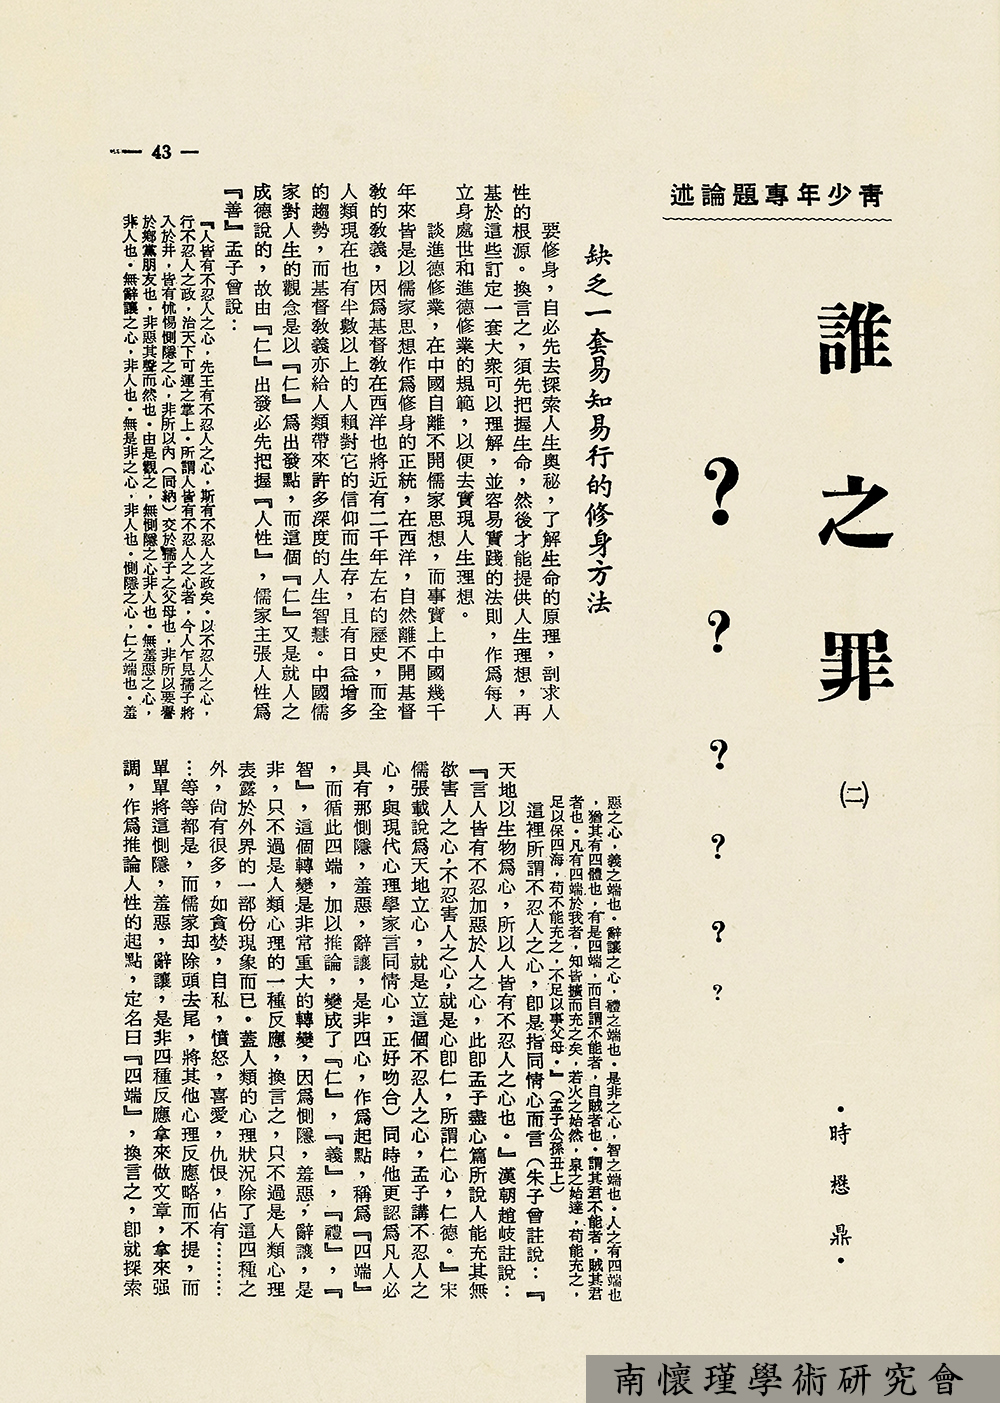 — 43 —
青少年專題論述
誰之罪
㈡
??????
•時懋鼎•
缺乏一套易知易行的修身方法
要修身，自必先去探索人生奧秘，了解生命的原理，剖求人
性的根源。換言之，須先把握生命，然後才能提供人生理想，再
基於這些訂定一套大衆可以理解，並容易實踐的法則，作爲每人
立身處世和進德修業的規範，以便去實現人生理想。
談進德修業，在中國自離不開儒家思想，而事實上中國幾千
年來皆是以儒家思想作爲修身的正統，在西洋，自然離不開基督
敎的敎義，因爲基督敎在西洋也將近有二千年左右的歷史，而全
人類現在也有半數以上的人賴對它的信仰而生存，且有日益增多
的趨勢，而基督敎義亦給人類帶來許多深度的人生智慧。中國儒
家對人生的觀念是以『仁』爲出發點，而這個『仁』又是就人之
成德說的，故由『仁』出發必先把握『人性』，儒家主張人性爲
『善』孟子曾說：
『人皆有不忍人之心，先王有不忍人之心，斯有不忍人之政矣。以不忍人之心，
行不忍人之政，治天下可運之掌上。所謂人皆有不忍人之心者，今人乍見孺子將
入於井，皆有怵惕惻隱之心，非所以內（同納）交於孺子之父母也，非所以要譽
於鄉黨朋友也，非惡其聲而然也。由是觀之，無惻隱之心非人也。無羞惡之心，
非人也。無辭讓之心，非人也。無是非之心，非人也。惻隱之心，仁之端也。羞
惡之心，義之端也。辭讓之心，禮之端也。是非之心，智之端也。人之有四端也
，猶其有四體也，有是四端，而自謂不能者，自賊者也。謂其君不能者，賊其君
者也。凡有四端於我者，知皆擴而充之矣，若火之始然，泉之始達，苟能充之，
足以保四海，苟不能充之，不足以事父母。』（孟子公孫丑上）
這裡所謂不忍人之心，卽是指同情心而言（朱子曾註說：『
天地以生物爲心，所以人皆有不忍人之心也。』漢朝趙岐註說：
『言人皆有不忍加惡於人之心，此卽孟子盡心篇所說人能充其無
欲害人之心，不忍害人之心，就是心卽仁，所謂仁心，仁德。』宋
儒張載說爲天地立心，就是立這個不忍人之心，孟子講不忍人之
心，與現代心理學家言同情心，正好吻合）同時他更認爲凡人必
具有那惻隱，羞惡，辭讓，是非四心，作爲起點，稱爲『四端』
，而循此四端，加以推論，變成了『仁』，『義』，『禮』，『
智』，這個轉變是非常重大的轉變，因爲惻隱，羞惡，辭讓，是
非，只不過是人類心理的一種反應，換言之，只不過是人類心理
表露於外界的一部份現象而已。蓋人類的心理狀況除了這四種之
外，尙有很多，如貪婪，自私，憤怒，喜愛，仇恨，佔有………
…等等都是，而儒家却除頭去尾，將其他心理反應略而不提，而
單單將這惻隱，羞惡，辭讓，是非四種反應拿來做文章，拿來强
調，作爲推論人性的起點，定名曰『四端』，換言之，卽就探索
南懷瑾學術研究會